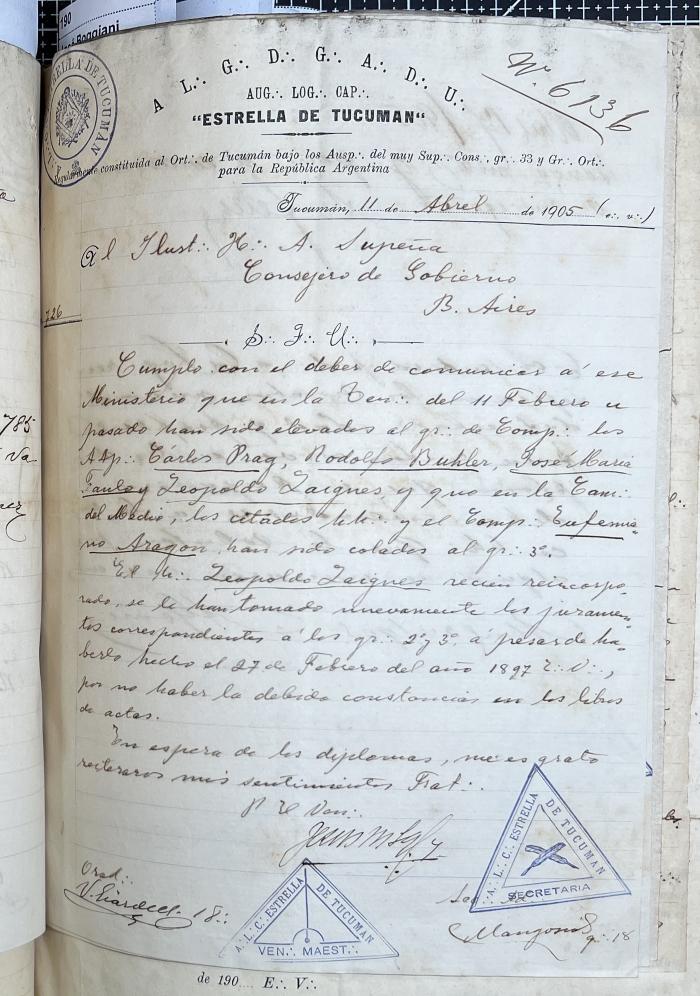 190
José Poggiani
A L∴ G∴ D∴ G∴ A∴ D∴ U∴
Nº. 6136
AUG∴ LOG∴ CAP∴
"ESTRELLA DE TUCUMAN"
ESTRELLA DE TUCUMAN
Regularmente constituida al Ort∴ de Tucumán bajo los Ausp∴ del muy Sup∴ Cons∴ gr∴ 33 y Gr∴ Ort∴
para la República Argentina
Tucumán, 11 de Abril de 1905 (e∴ v∴)
Al Ilust∴ H∴ A. Supeña
Consejero de Gobierno
B. Aires
726
S∴ F∴ U∴
Cumplo con el deber de comunicar á ese
Ministerio que en la Ten∴ del 11 Febrero
pasado han sido elevados al gr∴ de Comp∴ los
Asp∴ Cárlos Prag, Rodolfo Buhler, José Maria
y Leopoldo Zaignes, y que en la Cam∴
del Medio, los citados hh∴ y el Comp∴ Eufemia-
no Aragon han sido colados al gr∴ 3º.
El h∴ Leopoldo Zaignes recien reincorpo-
rado, se le han tomado nuevamente los juramen-
tos correspondientes á los gr∴ 2º y 3º á pesar de ha-
berlo hecho el 27 de Febrero del año 1897 E∴ V∴,
por no haber la debida constancias en los libros
de actas.
En espera de los diplomas, me es grato
reiteraros mis sentimientos Frat∴
P El Ven∴
Orad∴
18∴
A∴ L∴ C∴ ESTRELLA DE TUCUMAN
VEN∴ MAEST∴
A∴ L∴ C∴ ESTRELLA DE TUCUMAN
SECRETARIA
g∴ 18
785
de 190 E∴ V∴